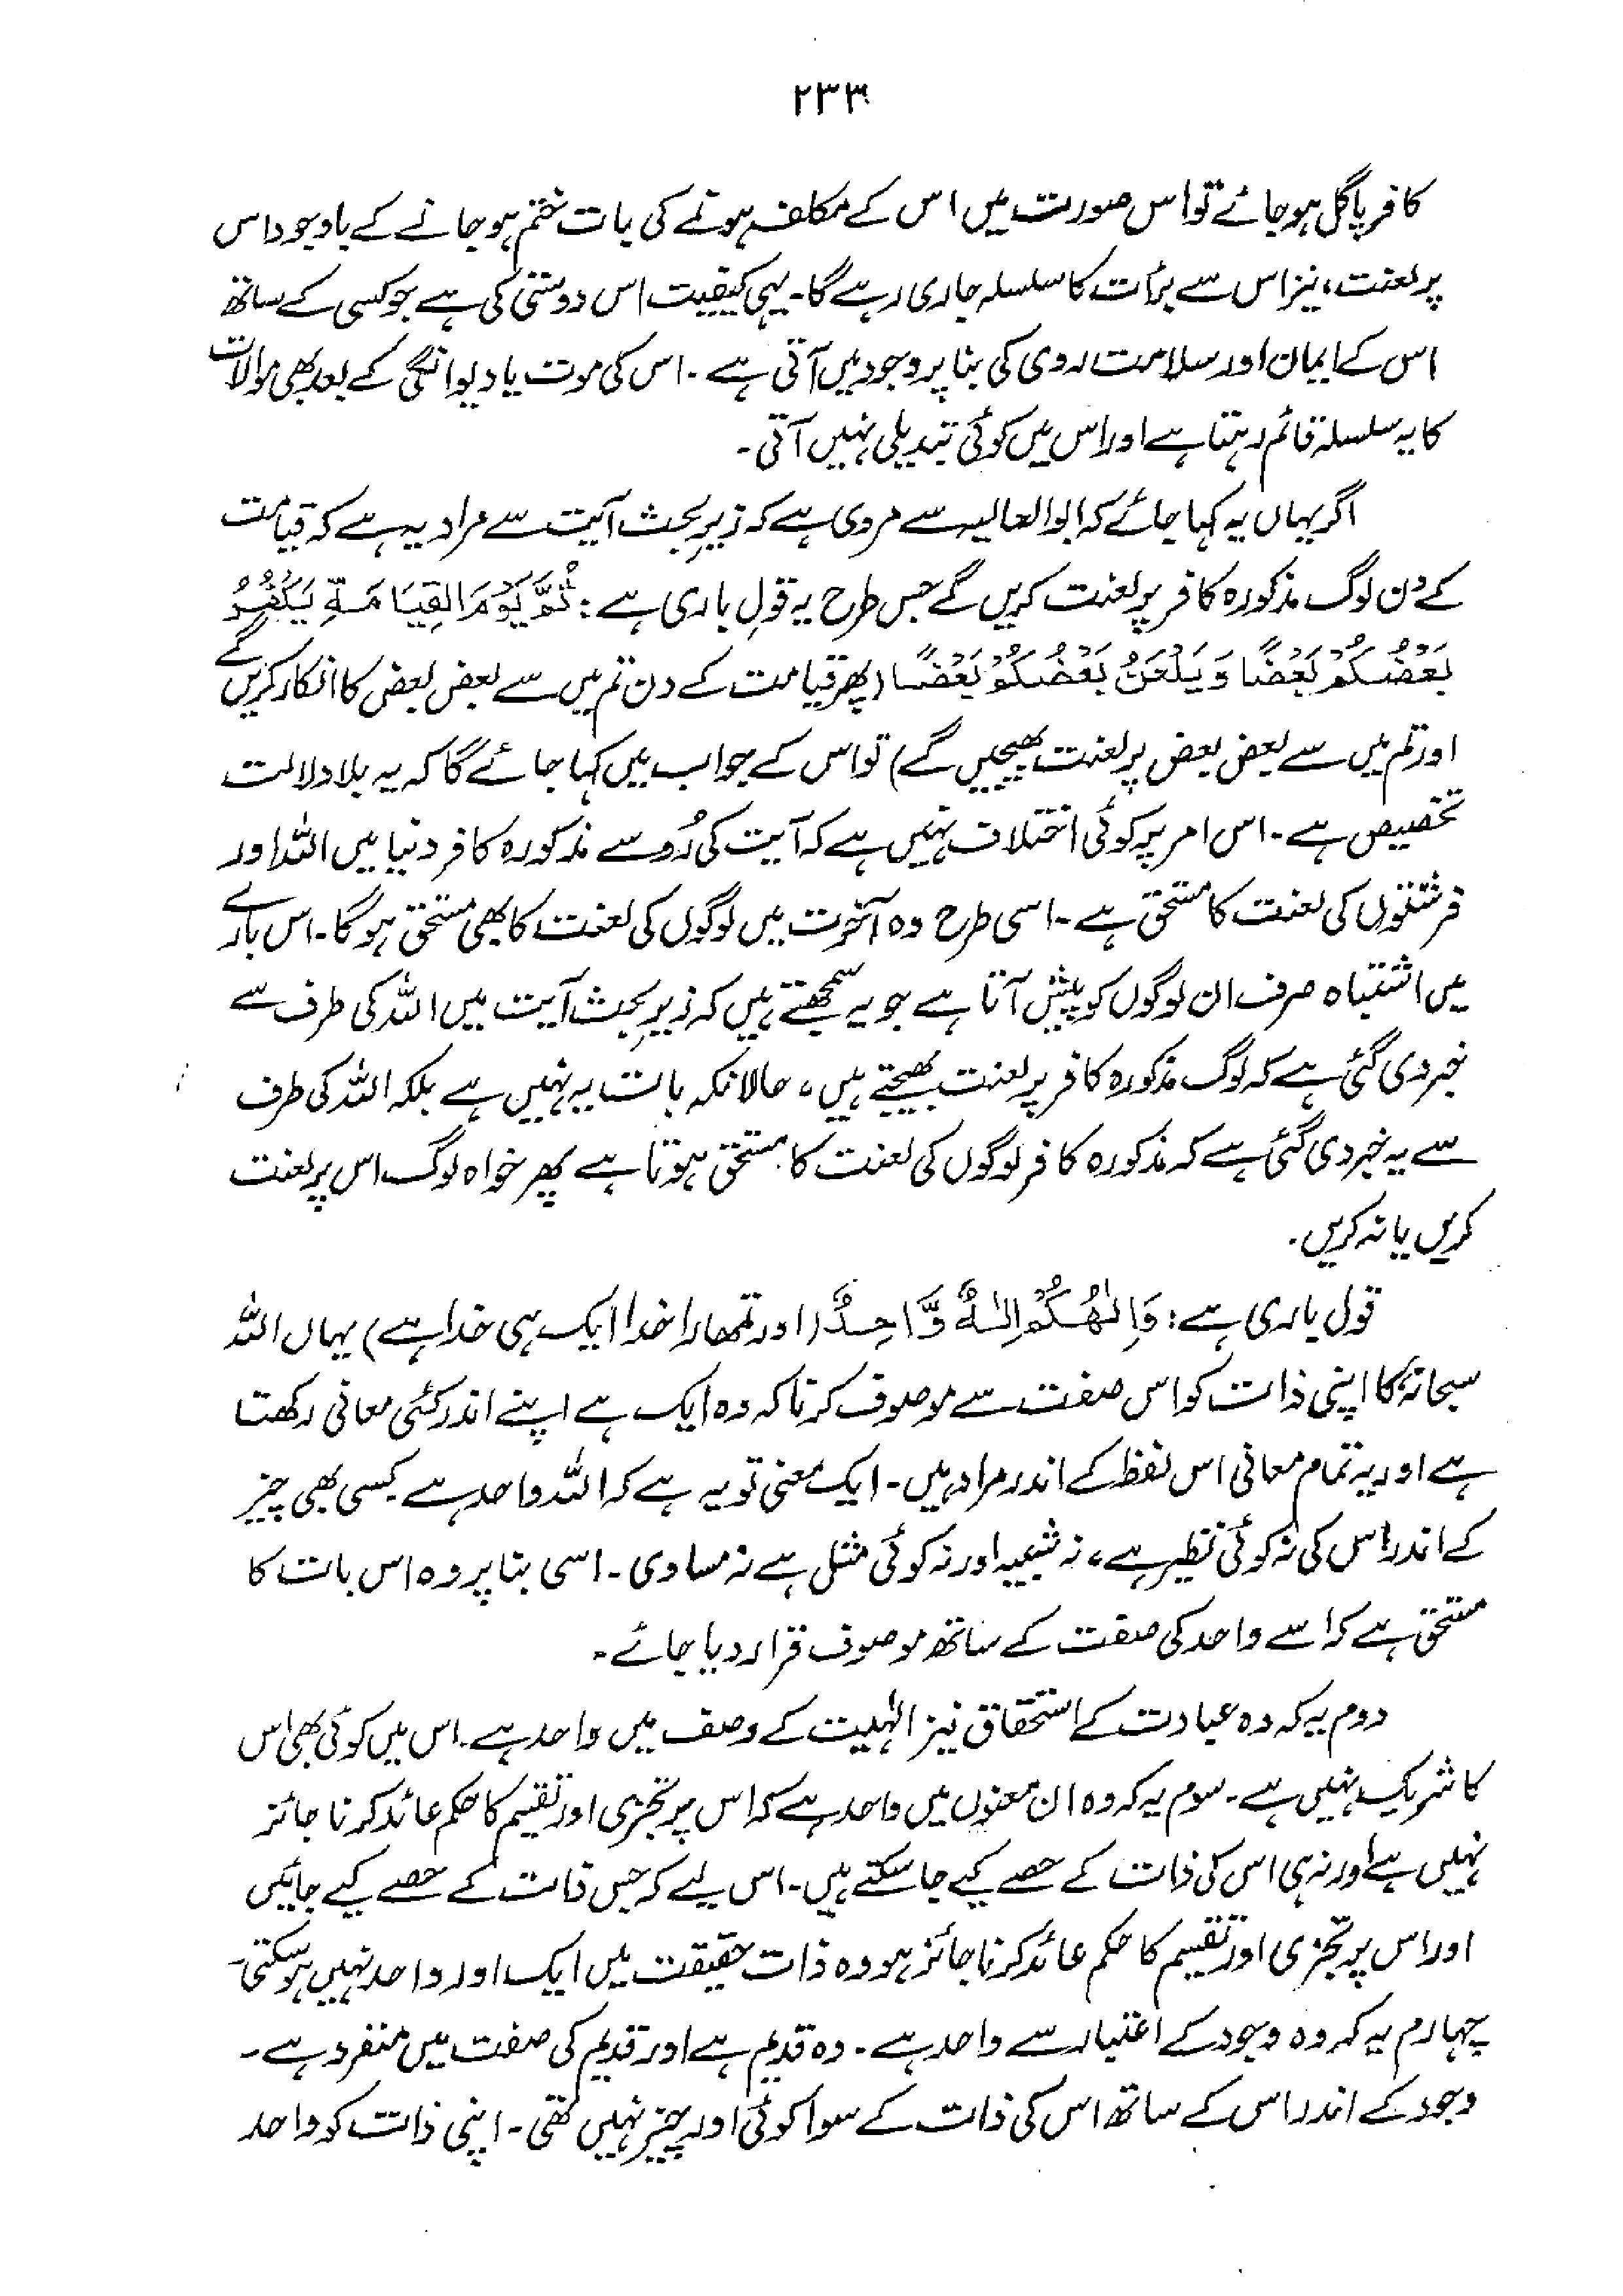 ۲۳۳
کافر پاگل ہو جائے تو اس صورت میں اس کے مکلف ہونے کی بات ختم ہو جانے کے باوجود اس
پر لعنت، نیز اس سے برأت کا سلسلہ جاری رہے گا۔ یہی کیفیت اس دوستی کی ہے جو کسی کے ساتھ
اس کے ایمان اور سلامت روی کی بنا پر وجود میں آتی ہے۔ اس کی موت یا دیوانگی کے بعد بھی موالات
کا یہ سلسلہ قائم رہتا ہے اور اس میں کوئی تبدیلی نہیں آتی۔
اگر یہاں یہ کہا جائے کہ ابوالعالیہ سے مروی ہے کہ زیرِ بحث آیت سے مراد یہ ہے کہ قیامت
کے دن لوگ مذکورہ کافر پر لعنت کریں گے جس طرح یہ قولِ باری ہے: ثُمَّ يَوْمَ الْقِيَامَةِ يَكْفُرُ
بَعْضُكُمْ بَعْضًا وَيَلْعَنُ بَعْضُكُمْ بَعْضًا (پھر قیامت کے دن تم میں سے بعض بعض کا انکار کریں گے
اور تم میں سے بعض بعض پر لعنت بھیجیں گے) تو اس کے جواب میں کہا جائے گا کہ یہ بلا دلالت
تخصیص ہے۔ اس امر پر کوئی اختلاف نہیں ہے کہ آیت کی رُو سے مذکورہ کافر دنیا میں اللہ اور
فرشتوں کی لعنت کا مستحق ہے۔ اسی طرح وہ آخرت میں لوگوں کی لعنت کا بھی مستحق ہوگا۔ اس بارے
میں اشتباہ صرف ان لوگوں کو پیش آتا ہے جو یہ سمجھتے ہیں کہ زیرِ بحث آیت میں اللہ کی طرف سے
خبر دی گئی ہے کہ لوگ مذکورہ کافر پر لعنت بھیجتے ہیں، حالانکہ بات یہ نہیں ہے بلکہ اللہ کی طرف
سے یہ خبر دی گئی ہے کہ مذکورہ کافر لوگوں کی لعنت کا مستحق ہوتا ہے پھر خواہ لوگ اس پر لعنت
کریں یا نہ کریں۔
قول باری ہے: وَإِلٰهُكُمْ إِلٰهٌ وَّاحِدٌ (اور تمھارا خدا ایک ہی خدا ہے) یہاں اللہ
سبحانہٗ کا اپنی ذات کو اس صفت سے موصوف کرنا کہ وہ ایک ہے اپنے اندر کئی معانی رکھتا
ہے اور یہ تمام معانی اس لفظ کے اندر مراد ہیں۔ ایک معنی تو یہ ہے کہ اللہ واحد ہے کسی بھی چیز
کے اندر اس کی نہ کوئی نظیر ہے، نہ شبیہ اور نہ کوئی مثل ہے نہ مساوی۔ اسی بنا پر وہ اس بات کا
مستحق ہے کہ اسے واحد کی صفت کے ساتھ موصوف قرار دیا جائے۔
دوم یہ کہ وہ عبادت کے استحقاق نیز الٰہیت کے وصف میں واحد ہے۔ اس میں کوئی بھی اس
کا شریک نہیں ہے۔ سوم یہ کہ وہ ان معنوں میں واحد ہے کہ اس پر تجزی اور تقسیم کا حکم عائد کرنا جائز
نہیں ہے اور نہ ہی اس کی ذات کے حصے کیے جا سکتے ہیں۔ اس لیے کہ جس ذات کے حصے کیے جائیں
اور اس پر تجزی اور تقسیم کا حکم عائد کرنا جائز ہو وہ ذات حقیقت میں ایک اور واحد نہیں ہو سکتی۔
چہارم یہ کہ وہ وجود کے اعتبار سے واحد ہے۔ وہ قدیم ہے اور قدیم کی صفت میں منفرد ہے۔
وجود کے اندر اس کے ساتھ اس کی ذات کے سوا کوئی اور چیز نہیں تھی۔ اپنی ذات کو واحد